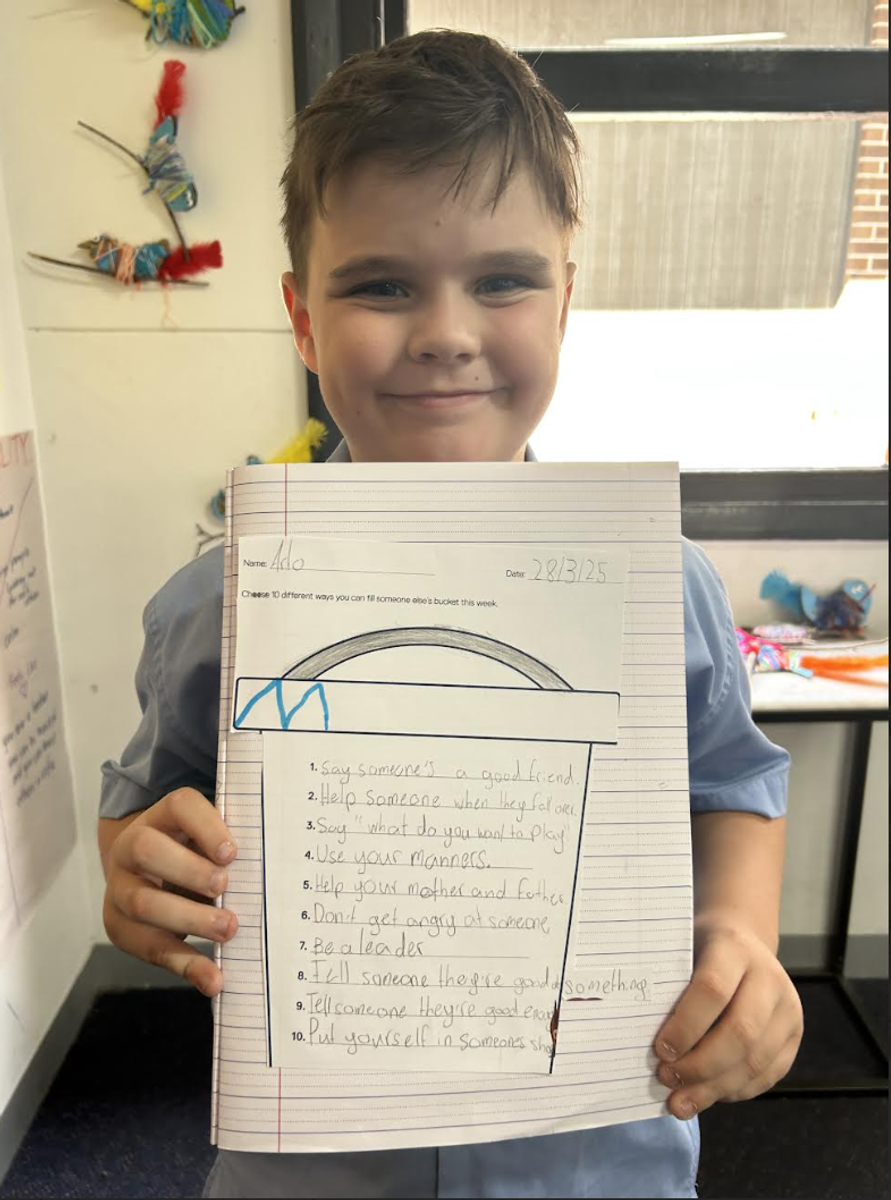 LITY
Name: Ado
Date: 28/3/25
Choose 10 different ways you can fill someone else's bucket this week.
1. Say someone's a good friend.
2. Help someone when they fall over.
3. Say "what do you want to play"
4. Use your manners.
5. Help your mother and father
6. Don't get angry at someone
7. Be a leader
8. Tell someone they're good at something
9. Tell someone they're good
10. Put yourself in someones